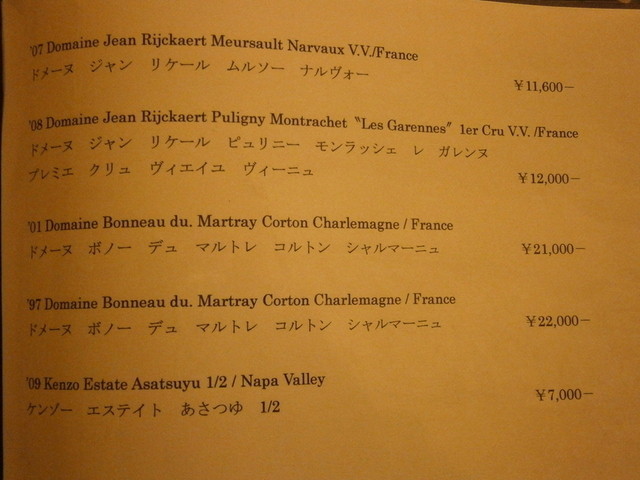 '07 Domaine Jean Rijckaert Meursault Narvaux V.V./France
ドメーヌ ジャン リケール ムルソー ナルヴォー
￥11,600−
'08 Domaine Jean Rijckaert Puligny Montrachet〝Les Garennes〞1er Cru V.V. /France
ドメーヌ ジャン リケール ピュリニー モンラッシェ レ ガレンヌ
プレミエ クリュ ヴィエイユ ヴィーニュ
￥12,000−
'01 Domaine Bonneau du. Martray Corton Charlemagne / France
ドメーヌ ボノー デュ マルトレ コルトン シャルマーニュ
￥21,000−
'97 Domaine Bonneau du. Martray Corton Charlemagne / France
ドメーヌ ボノー デュ マルトレ コルトン シャルマーニュ
￥22,000−
'09 Kenzo Estate Asatsuyu 1/2 / Napa Valley
ケンゾー エステイト あさつゆ 1/2
￥7,000−